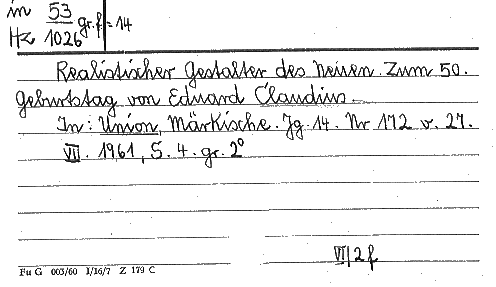 in 53 gr.f. = 14
Hz 1026
Realistischer Gestalter des Neuen. Zum 50.
Geburtstag von Eduard Claudius.
In: Union, Märkische. Jg. 14. Nr 172 v. 27.
VII. 1961, S. 4. gr. 2°
VI/2f
Fu G 003/60 I/16/7 Z 179 C